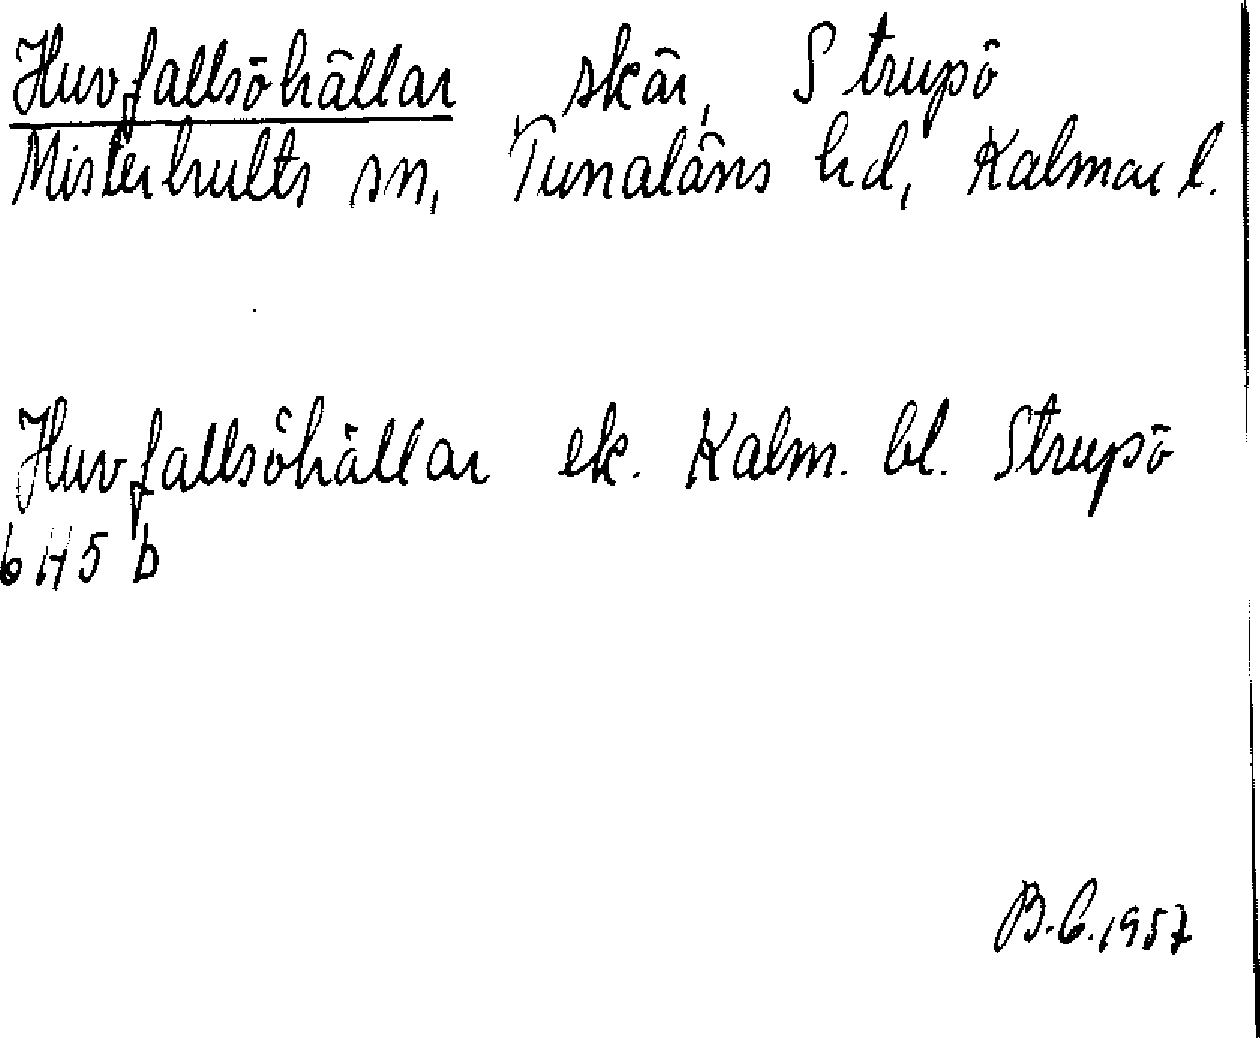 Huvfallsöhällar skär, Strupö
Misterhults sn, Tunaläns hd, Kalmar l.
Huvfallsöhällar ek. Kalm. bl. Strupö
6 H5 b
B.C. 1957